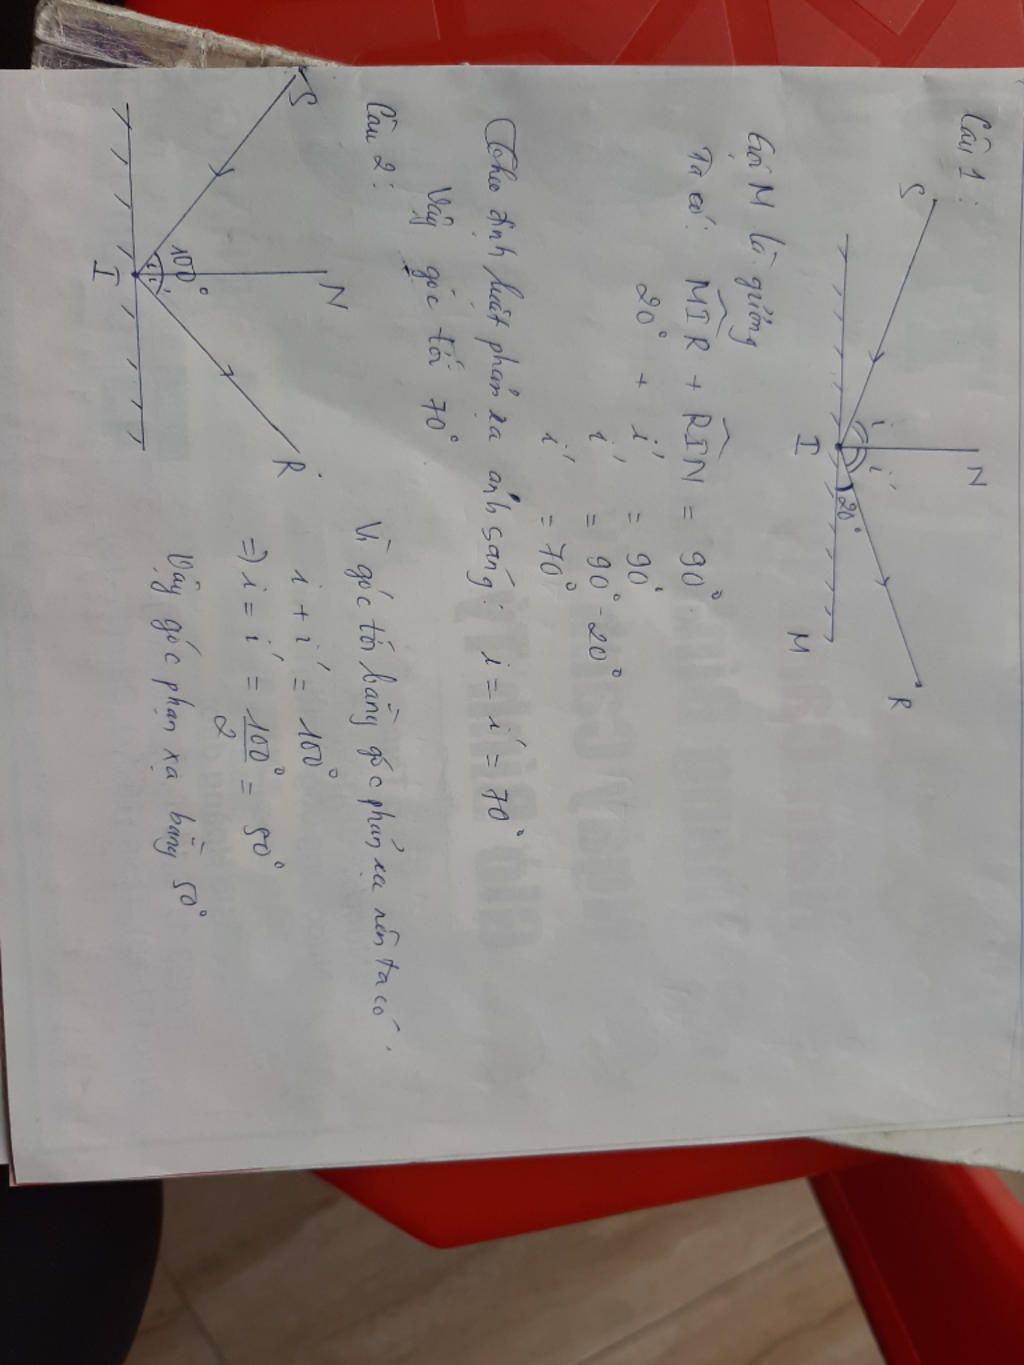 Câu 1:
S
N
i
i'
20°
R
I
M
Gọi M là gương
Ta có: MIR + RIN = 90°
20° + i' = 90°
i' = 90° - 20°
i' = 70°
Theo định luật phản xạ ánh sáng: i = i' = 70°
Vậy góc tới 70°
Câu 2:
S
N
R
100°
i i'
I
Vì góc tới bằng góc phản xạ nên ta có
i + i' = 100°
=> i = i' = 100°/2 = 50°
Vậy góc phản xạ bằng 50°